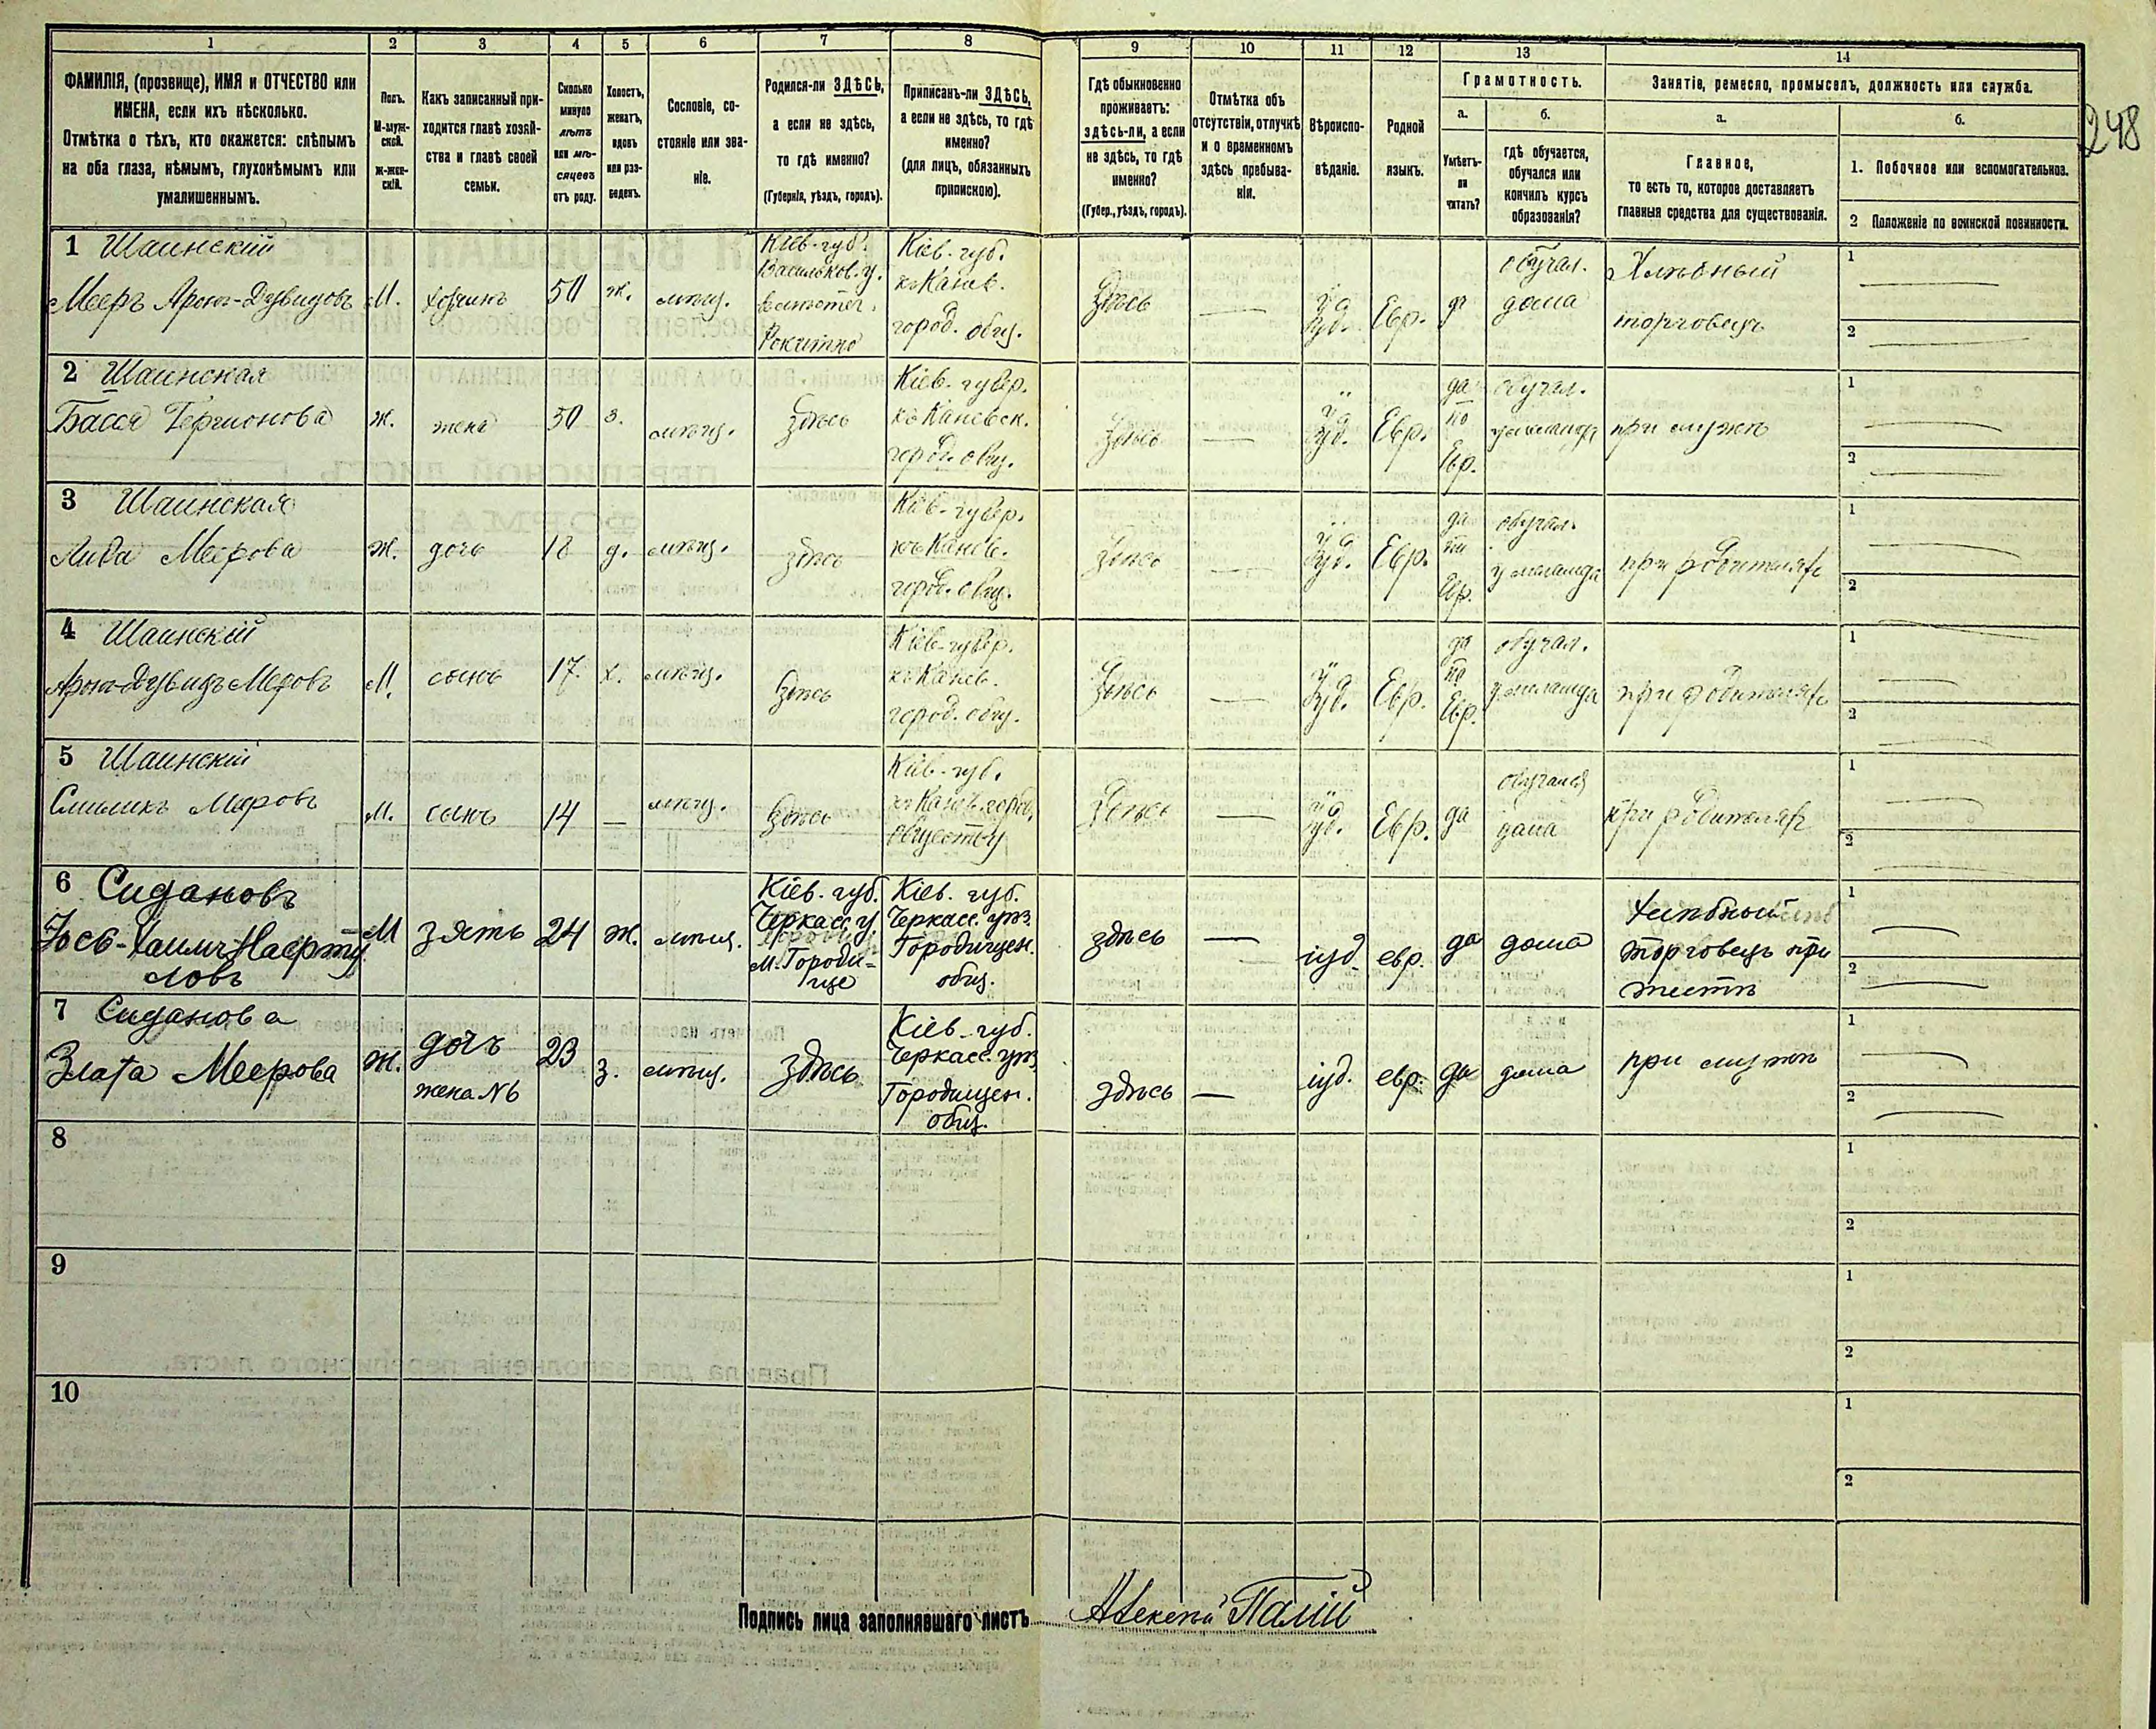 1 2 3 4 5 6 7 8 9 10 11 12 13 14
ФАМИЛІЯ, (прозвище), ИМЯ и ОТЧЕСТВО или
ИМЕНА, если ихъ нѣсколько.
Отмѣтка о тѣхъ, кто окажется: слѣпымъ
на оба глаза, нѣмымъ, глухонѣмымъ или
умалишеннымъ.
Полъ.
М-муж-
ской.
ж-жен-
скій.
Какъ записанный при-
ходится главѣ хозяй-
ства и главѣ своей
семьи.
Сколько
минуло
лѣтъ
или мѣ-
сяцевъ
отъ роду.
Холостъ,
женатъ,
вдовъ
или раз-
веденъ.
Сословіе, со-
стояніе или зва-
ніе.
Родился-ли ЗДѢСЬ,
а если не здѣсь,
то гдѣ именно?
(Губернія, уѣздъ, городъ).
Приписанъ-ли ЗДѢСЬ,
а если не здѣсь, то гдѣ
именно?
(для лицъ, обязанныхъ
припискою).
Гдѣ обыкновенно
проживаетъ:
здѣсь-ли, а если
не здѣсь, то гдѣ
именно?
(Губер., уѣздъ, городъ).
Отмѣтка объ
отсутствіи, отлучкѣ
и о временномъ
здѣсь пребыва-
ніи.
Вѣроиспо-
вѣданіе.
Родной
языкъ.
Грамотность.
а.
Умѣетъ-
ли
читать?
б.
гдѣ обучается,
обучался или
кончилъ курсъ
образованія?
Занятіе, ремесло, промыселъ, должность или служба.
а.
Главное,
то есть то, которое доставляетъ
главныя средства для существованія.
б.
1. Побочное или вспомогательное.
2 Положеніе по воинской повинности.
248
1 Шаинскій
Мееръ Аронъ-Дувидовъ
М.
хозяинъ
50
ж.
мѣщ.
Кіев. губ.
Васильков. у.
мѣстеч.
Рокитно
Кіев. губ.
къ Канев.
город. общ.
Здѣсь
—
Іуд.
Евр.
да
обучал.
дома
Хлѣбный
торговецъ
1
2
2 Шаинская
Бася Гершонова
ж.
жена
50
з.
мѣщ.
Здѣсь
Кіев. губер.
къ Каневск.
город. общ.
Здѣсь
—
Іуд.
Евр.
да
по
Евр.
обучал.
у меламда
при мужѣ
1
2
3 Шаинская
Меерова
ж.
дочь
18
д.
мѣщ.
здѣсь
Кіев. губер.
къ Канев.
город. общ.
Здѣсь
—
Іуд.
Евр.
да
по
Евр.
обучал.
у меламда
при родителяхъ
1
2
4 Шаинскій
Аронъ-Дувидъ Мееровъ
М.
сынъ
17.
х.
мѣщ.
Здѣсь
Кіев. губер.
къ Канев.
город. общ.
Здѣсь
—
Іуд.
Евр.
да
по
Евр.
обучал.
у меламда
при родителяхъ
1
2
5 Шаинскій
Меровъ
М.
сынъ
14
—
мѣщ.
Здѣсь
Кіев. губ.
къ Канев. город.
обществу
Здѣсь
—
Іуд.
Евр.
да
обучался
дома
при родителяхъ
1
2
6 Сидановъ
М
зять
24
ж.
мѣщ.
Кіев. губ.
Черкасс. у.
м. Городи-
ще
Кіев. губ.
Черкасс. уѣз.
Городищен.
общ.
здѣсь
—
іуд.
евр.
да
дома
хлѣбный
торговецъ при
тестѣ
1
2
7 Сиданова
Злата Меерова
ж.
дочь
жена №6
23
з.
мѣщ.
здѣсь
Кіев. губ.
Черкасс. уѣз
Городищен.
общ.
здѣсь
—
іуд.
евр.
да
дома
при мужѣ
1
2
8
1
2
9
1
2
10
1
2
Подпись лица заполнявшаго листъ Алексѣй Палій